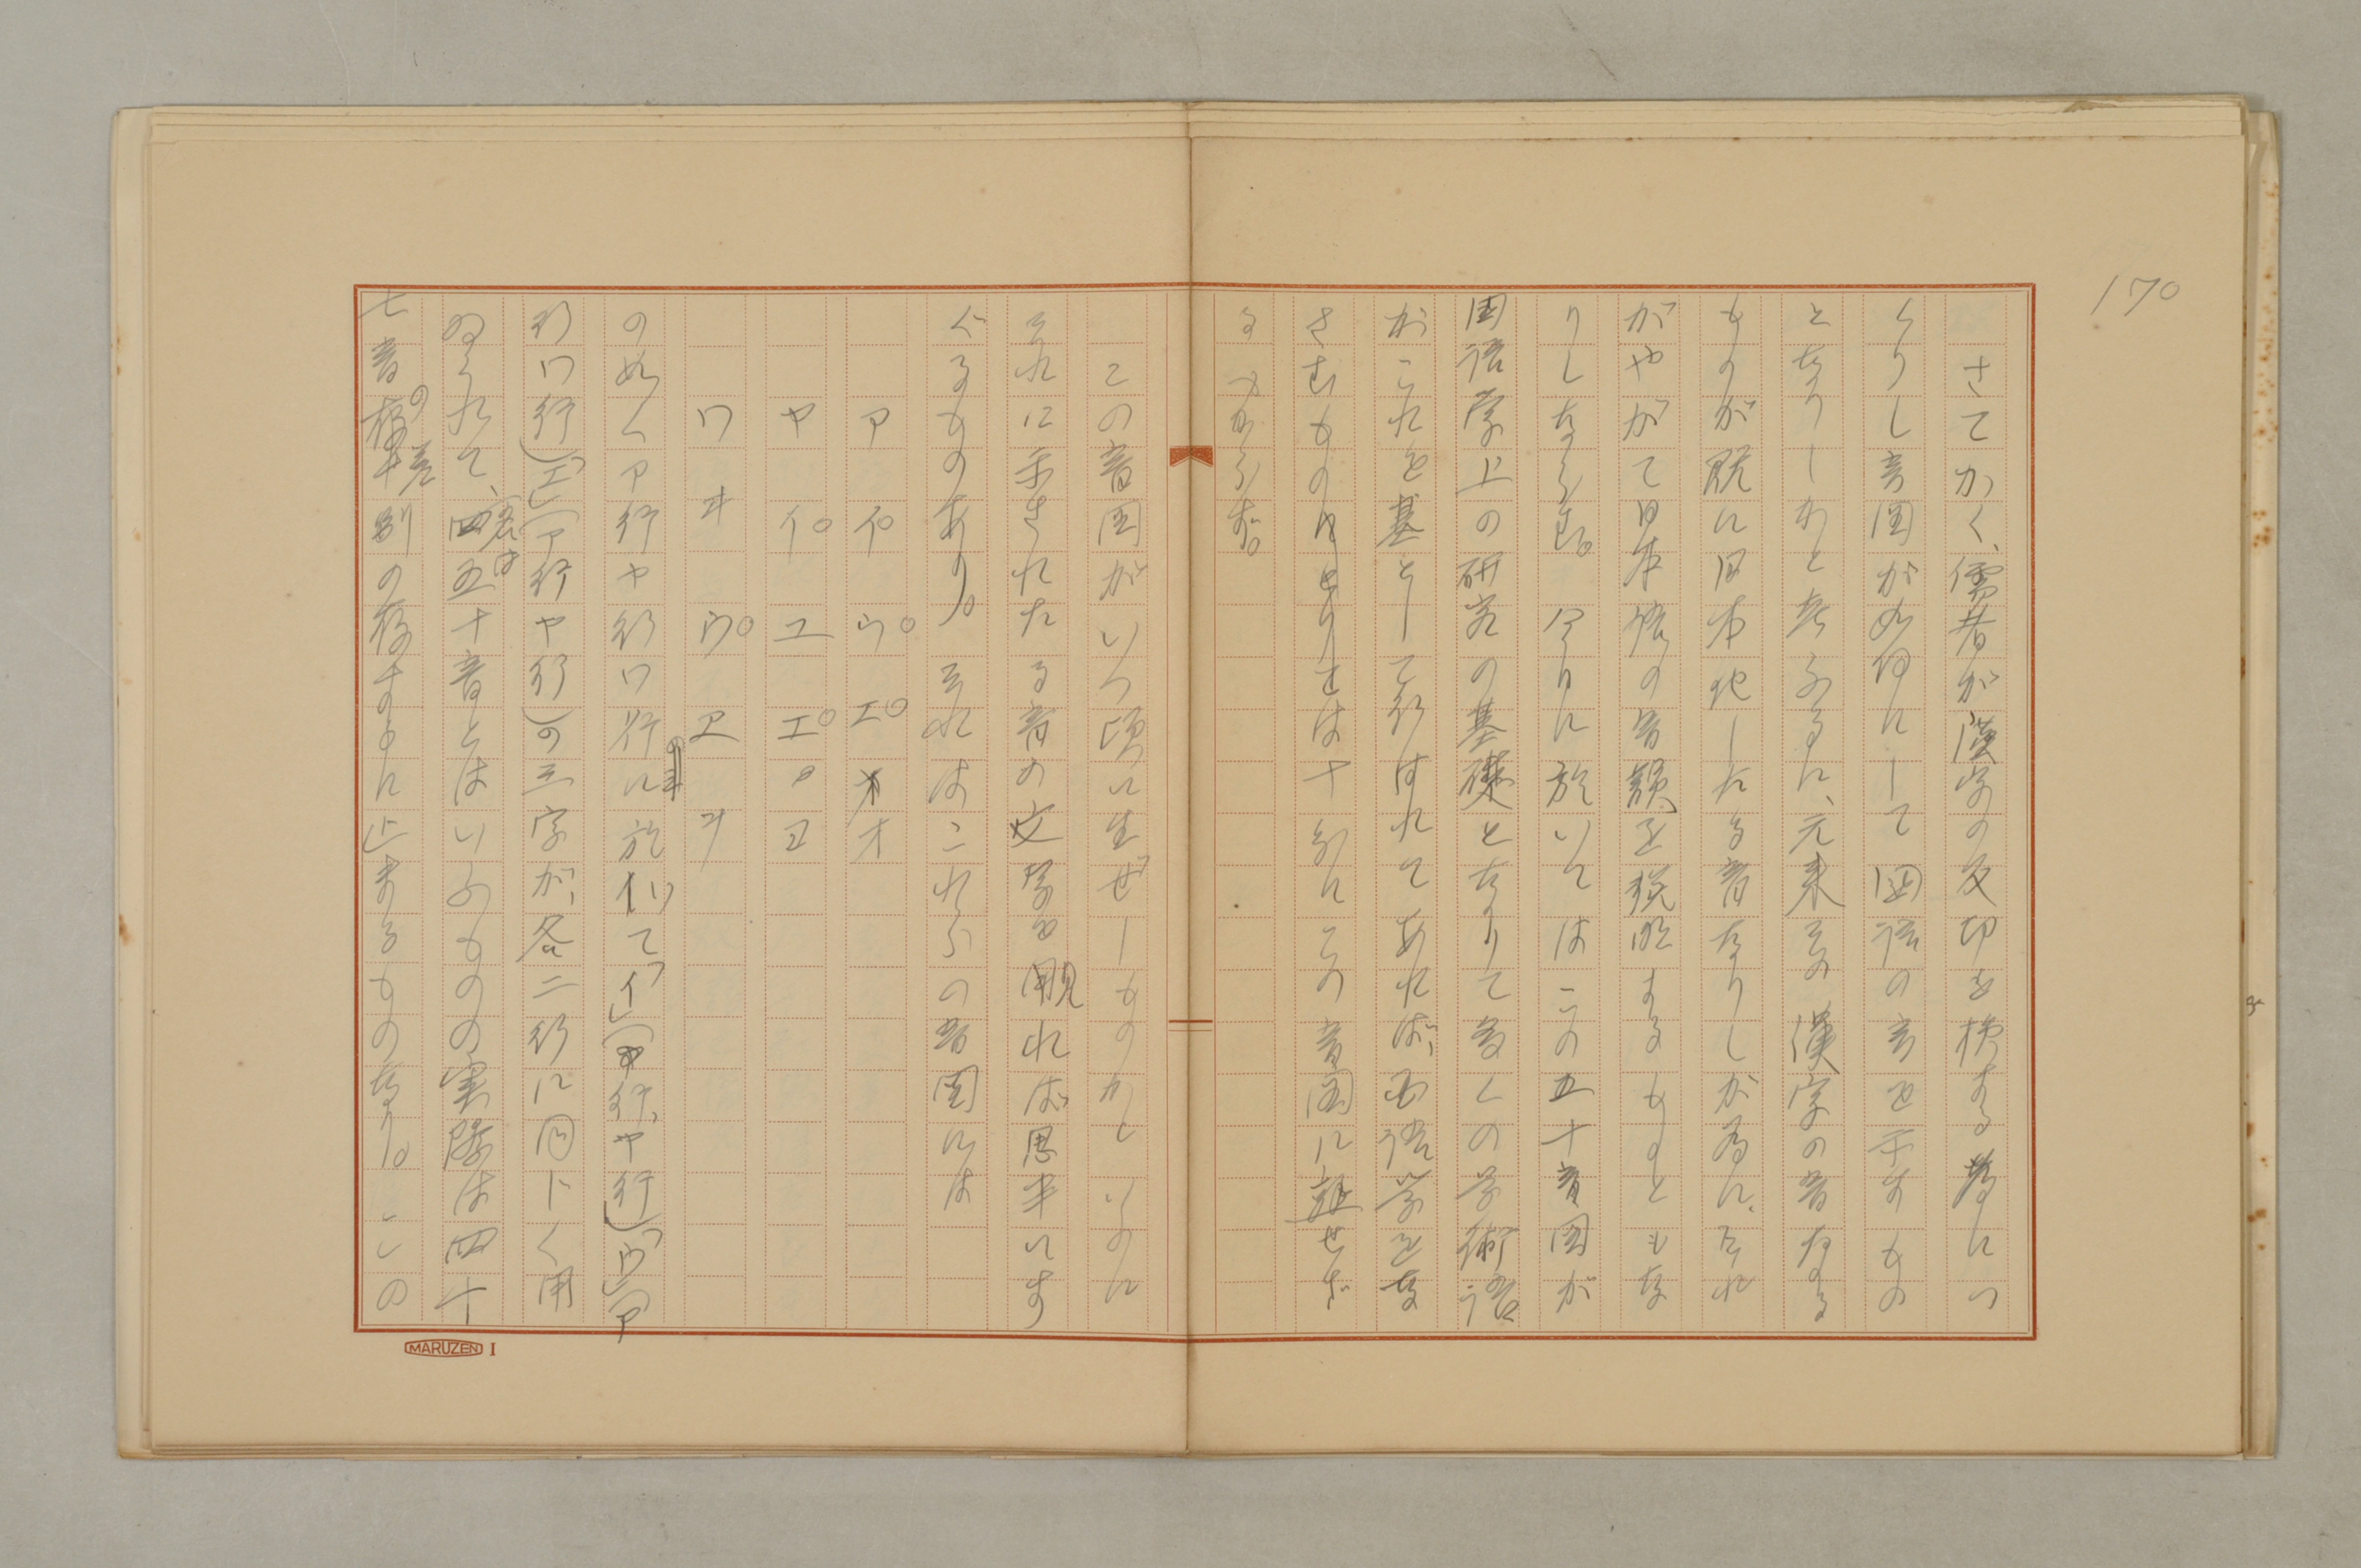 170
さてかく、儒者が漢字の反切を検する為につ
くりし音図が如何にして国語の音を示すもの
となりしかと考ふるに、元来その漢字の音なる
ものが既に日本化したる音なりしが為に、それ
がやがて日本語の音韻を説明するものともな
りしならむ。今日に於いてはこの五十音図が
国語学上の研究の基礎となりて多くの学術語
がこれを基として行はれてあれば、国語学をな
さむものは十分にこの音図に熟せざ
るべからず。
この音図がいつ頃に生ぜしものかといふに
それに示されたる音の文字を観れば思半にす
ぐるものあり。それはこれらの音図には
ア イ ウ エ オ
ヤ イ ユ エ ヨ
ワ ヰ ウ ヱ ヲ
の如くア行ヤ行ワ行に於いて「イ」(ア行、ヤ行)「ウ」(ア
行ワ行)「エ」(ア行ヤ行)の三字が、各二行に同じく用
ゐられて、名は五十音とはいふものの実際は四十
七音の差別の存するに止まるものなり。この
MARUZEN I